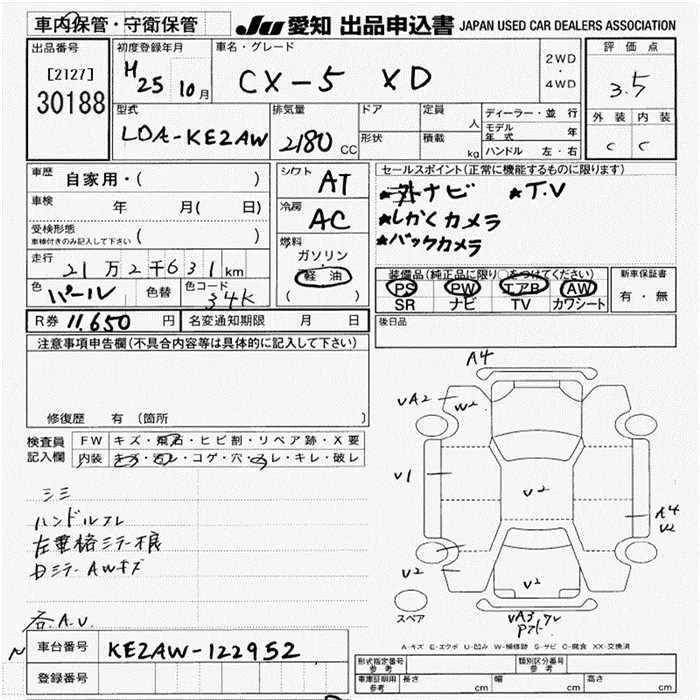 車内保管・守衛保管
JU 愛知 出品申込書 JAPAN USED CAR DEALERS ASSOCIATION
出品番号
[2127]
30188
初度登録年月
H25 10月
車名・グレード
CX-5 XD
2WD
・
4WD
評価点
3.5
外装 内装
C C
型式
LDA-KE2AW
排気量
2180 CC
ドア
形状
定員
人
積載
kg
ディーラー・並行
モデル年式 年
ハンドル 左・右
車歴 自家用・( )
車検 年 月(日)
受検形態
車検付きのみ記入して下さい ( )
走行
21万2千631km
色 パール 色替 色コード 34K
シフト AT
冷房 AC
燃料
ガソリン
軽油
( )
セールスポイント(正常に機能するものに限ります)
ナビ ★T.V
★しかくカメラ
★バックカメラ
装備品(純正品に限り○をつけてください)
PS PW エアB AW
SR ナビ TV カワシート
新車保証書
有・無
R券 11,650円 名変通知期限 月 日
後日品
注意事項申告欄(不具合内容等は具体的に記入して下さい)
修復歴 有(箇所
検査員記入欄
FW キズ・飛石・ヒビ割・リペア跡・X要
内装 キズ・汚レ・コゲ・穴・スレ・キレ・破レ
シミ
ハンドルスレ
Dミラー AWキズ
各A.U.
A4
UA2
W2
U1
U2
A4
U2
U2
U2
UA3
スペア
A-キズ E-エクボ U-凹み W-補修跡 S-サビ C-腐食 XX-交換済
車台番号 KE2AW-122952
登録番号
形式指定番号 参考
類別区分番号 参考
車庫証明用 参考 長さ cm 幅 cm 高さ cm